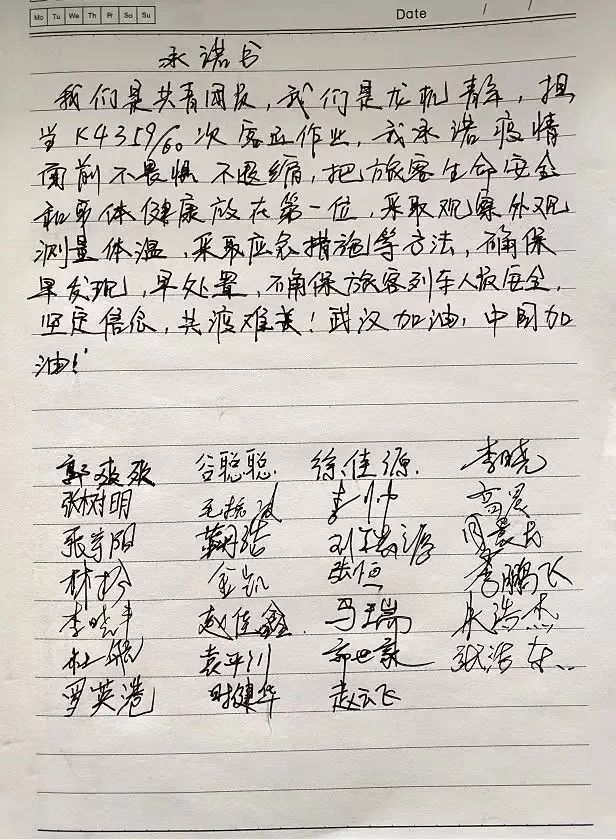 Mo Tu We Th Fr Sa Su
Date / /
承诺书
我们是共青团员，我们是龙机青年，担
当K4359/60次客运作业，我承诺疫情
面前不畏惧不退缩，把旅客生命安全
和身体健康放在第一位，采取观察外观
测量体温，采取应急措施等方法，确保
早发现，早处置，确保旅客列车人员安全，
坚定信念，共渡难关！武汉加油，中国加
油！
郭爽爽 谷聪聪 徐佳源 李晓
张树明 李帅 高晨
张宇阳 张恒 李鹏飞
林松 金凯 马王瑞 朱浩杰
李晓丰 赵佳鑫 郭世豪 张浩东
杜航 袁平川 赵云飞
罗英港 时建华